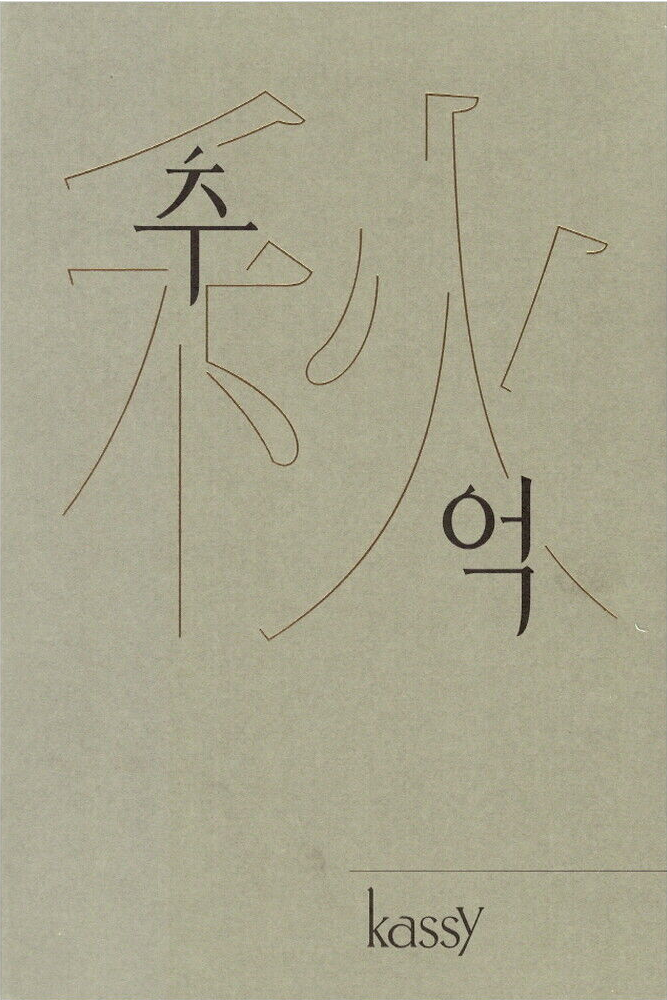 秋
추억
kassy